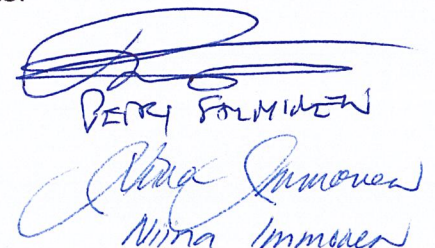 PETRI SALMINEN
Niina Immonen
Niina Immonen